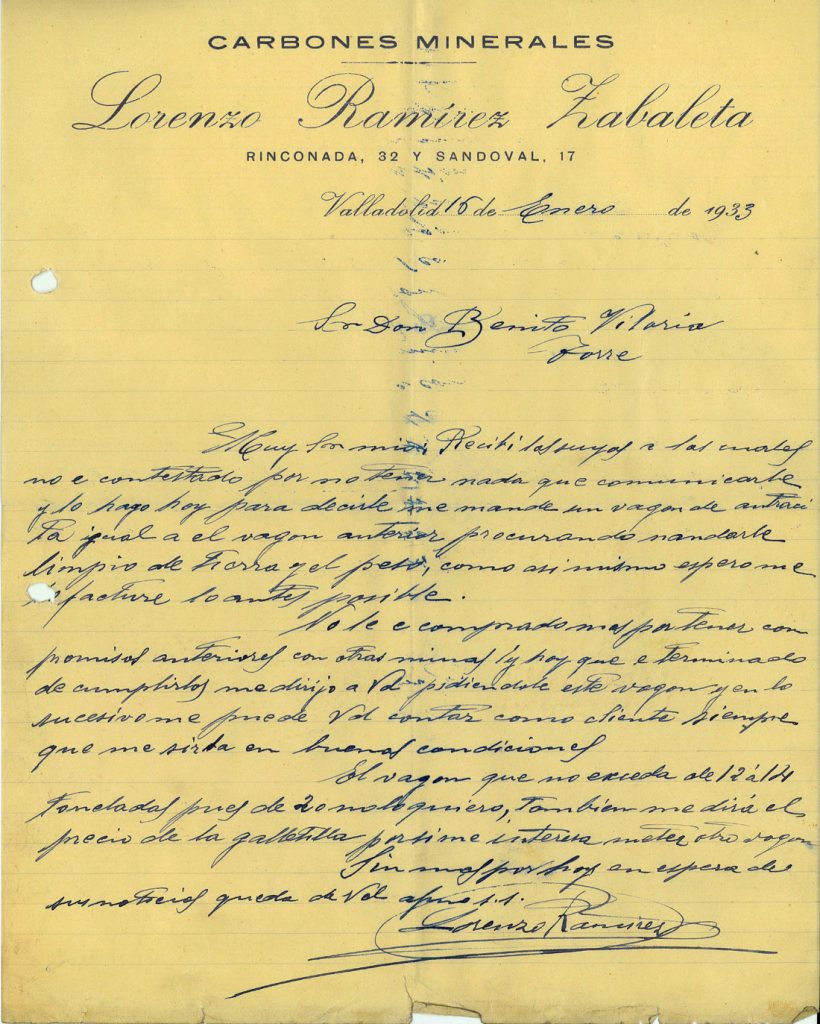 CARBONES MINERALES
Lorenzo Ramírez Zabaleta
RINCONADA, 32 Y SANDOVAL, 17
Valladolid 16 de Enero de 1933
Sr Don Benito Vitoria
Torre
Muy Sr mio: Recibi las suyas a las cuales
no e contestado por no tener nada que comunicarle
y lo hago hoy para decirle me mande un vagon de antraci
ta igual a el vagon anterior procurando mandarle
limpio de tierra y el peso, como asi mismo espero me
facture lo antes posible.
No le e comprado mas por tener com
promisos anteriores con otras minas y hoy que e terminado
de cumplirlos me dirijo a Vd pidiendole este vagon y en lo
sucesivo me puede Vd contar como cliente siempre
que me sirba en buenas condiciones
El vagon que no exceda de 12 á 14
toneladas pues de 20 no lo quiero, tambien me dirá el
precio de la galletilla por si me interesa meter otro vagon
Sin mas por hoy en espera de
sus noticias queda de Vd afmo s.s.
Lorenzo Ramirez